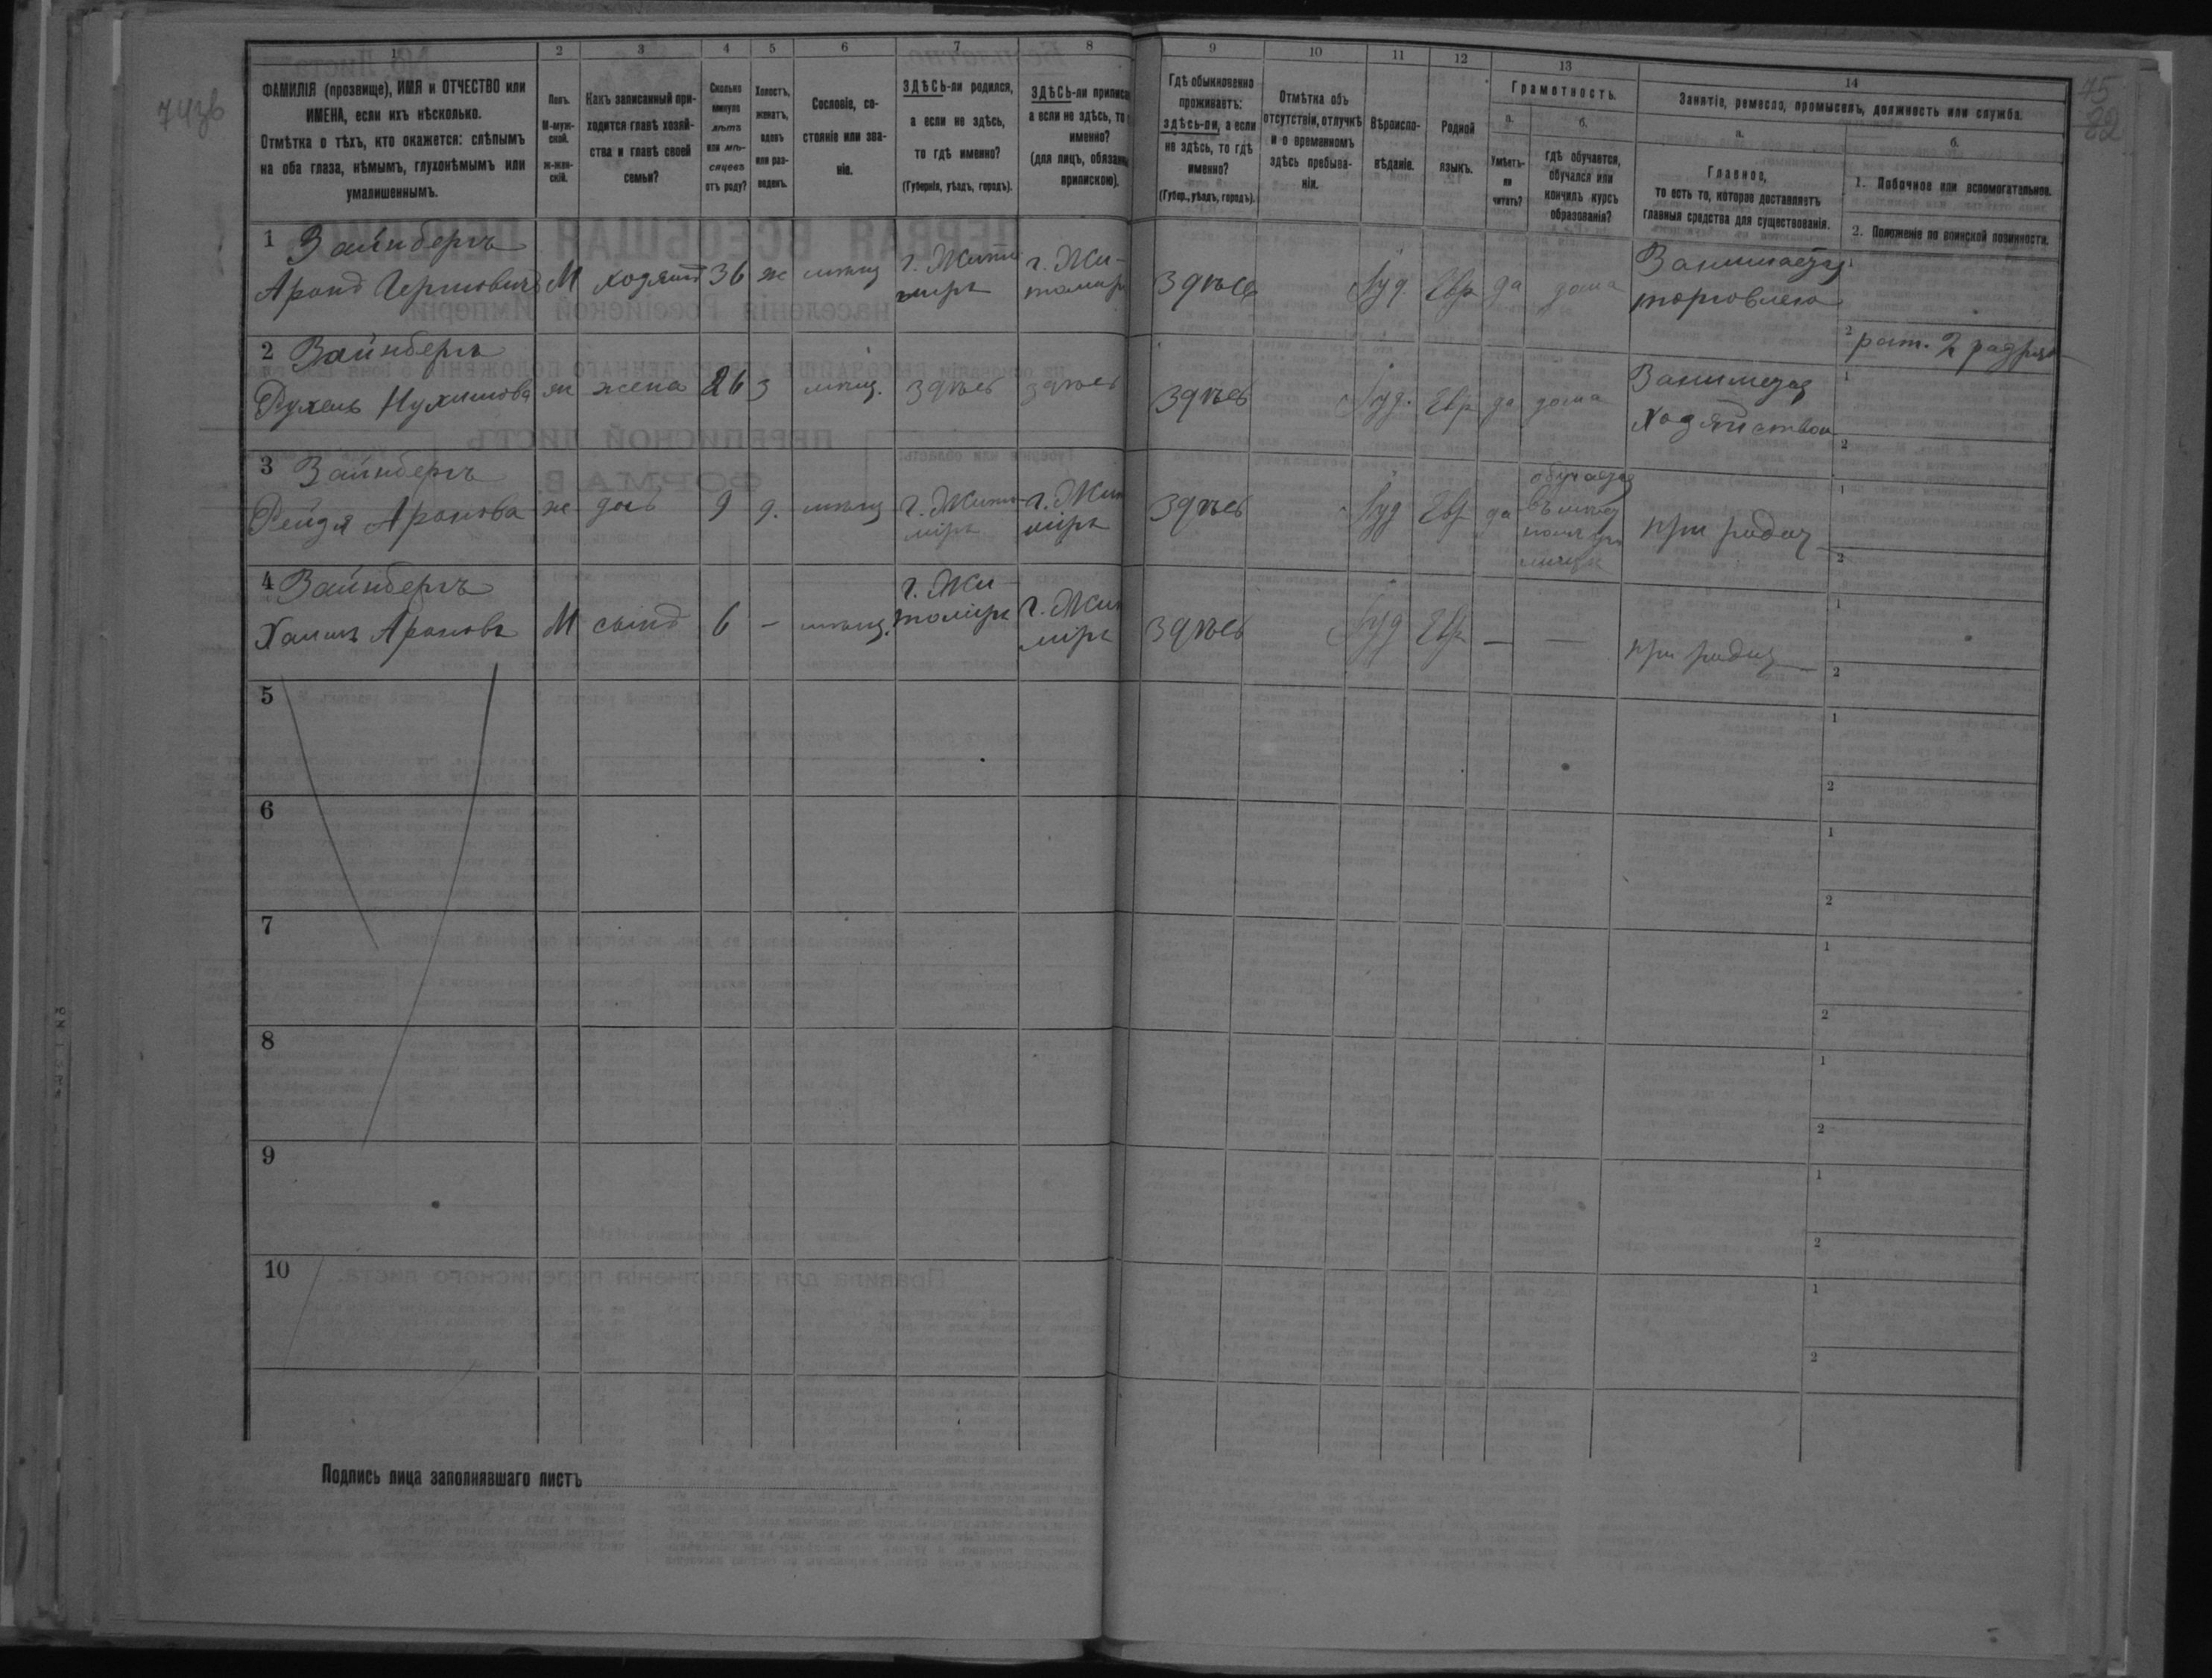 74 зв
75
82
1 2 3 4 5 6 7 8 9 10 11 12 13 14
ФАМИЛІЯ (прозвище), ИМЯ и ОТЧЕСТВО или
ИМЕНА, если ихъ нѣсколько.
Отмѣтка о тѣхъ, кто окажется: слѣпымъ
на оба глаза, нѣмымъ, глухонѣмымъ или
умалишеннымъ.
Полъ.
М-муж-
ской.
ж-жен-
скій.
Какъ записанный при-
ходится главѣ хозяй-
ства и главѣ своей
семьи?
Сколько
минуло
лѣтъ
или мѣ-
сяцевъ
отъ роду?
Холостъ,
женатъ,
вдовъ
или раз-
веденъ.
Сословіе, со-
стояніе или зва-
ніе.
ЗДѢСЬ-ли родился,
а если не здѣсь,
то гдѣ именно?
(Губернія, уѣздъ, городъ).
ЗДѢСЬ-ли приписа
а если не здѣсь, то
именно?
(для лицъ, обязанн
припискою).
Гдѣ обыкновенно
проживаетъ:
здѣсь-ли, а если
не здѣсь, то гдѣ
именно?
(Губер., уѣздъ, городъ).
Отмѣтка объ
отсутствіи, отлучкѣ
и о временномъ
здѣсь пребыва-
ніи.
Вѣроиспо-
вѣданіе.
Родной
языкъ.
Грамотность.
а.
Умѣетъ-
ли
читать?
б.
гдѣ обучается,
обучался или
кончилъ курсъ
образованія?
Занятіе, ремесло, промыселъ, должность или служба.
а.
Главное,
то есть то, которое доставляетъ
главныя средства для существованія.
б.
1. Побочное или вспомогательное.
2. Положеніе по воинской повинности.
1 Вайнбергъ
Аронъ Гершовичъ М хозяинъ 36 ж мѣщ г. Жито
миръ
г. Жи-
томиръ
здѣсь Іуд. Евр да дома
Занимается
торговлею
1
2 рат. 2 разряда
2 Вайнбергъ
Рухель Нухимова ж жена 26 з мѣщ. здѣсь здѣсь здѣсь Іуд. Евр да дома
Занимается
хозяйством
1
2
3 Вайнбергъ
Рейзя Аронова ж дочь 9 д. мѣщ г. Жито
міръ
г. Жит
міръ
здѣсь Іуд Евр да
обучается
въ
при родит
1
2
4 Вайнбергъ
Хаимъ Ароновъ М сынъ 6 – мѣщ. г. Жи
томіръ
г. Жит
міръ
здѣсь Іуд Евр — —
при родит
1
2
5
1
2
6
1
2
7
1
2
8
1
2
9
1
2
10
1
2
Подпись лица заполнявшаго листъ